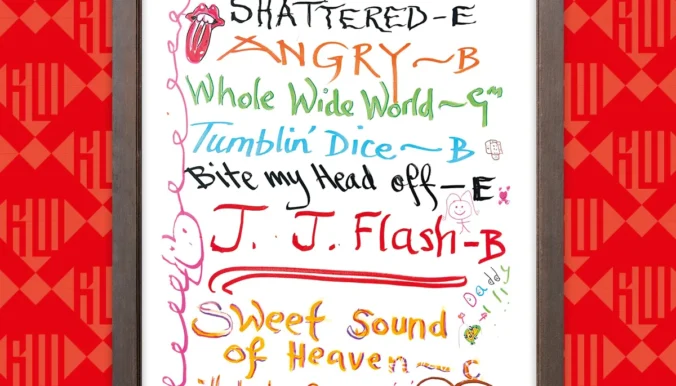 SHATTERED-E
ANGRY~B
Whole Wide World~Gᵐ
Tumblin' Dice~B
Bite my Head off-E
J. J. Flash-B
Daddy
Sweet Sound
of Heaven~C